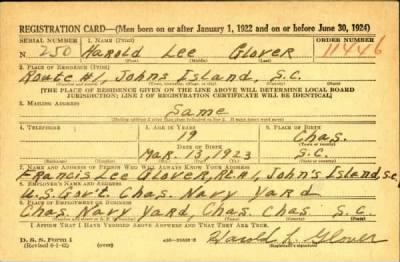 REGISTRATION CARD—(Men born on or after January 1, 1922 and on or before June 30, 1924)
SERIAL NUMBER 1. NAME (Print) ORDER NUMBER
N 250 Harold Lee Glover 11446
(First) (Middle) (Last)
2. PLACE OF RESIDENCE (Print)
Route #1, Johns Island, S.C.
[THE PLACE OF RESIDENCE GIVEN ON THE LINE ABOVE WILL DETERMINE LOCAL BOARD
JURISDICTION; LINE 2 OF REGISTRATION CERTIFICATE WILL BE IDENTICAL]
3. MAILING ADDRESS
Same
4. TELEPHONE 5. AGE IN YEARS 6. PLACE OF BIRTH
19 Chas.
DATE OF BIRTH (Town or county)
Mar. 13 1923 S.C.
7. NAME AND ADDRESS OF PERSON WHO WILL ALWAYS KNOW YOUR ADDRESS
Francis Lee Glover, Rt. #1, John's Island, S.C.
8. EMPLOYER'S NAME AND ADDRESS
U.S. Gov't. Chas. Navy Yard
9. PLACE OF EMPLOYMENT OR BUSINESS
Chas. Navy Yard, Chas. Chas. S.C.
I AFFIRM THAT I HAVE VERIFIED ABOVE ANSWERS AND THAT THEY ARE TRUE.
D. S. S. Form 1
(Revised 6-1-42) Harold L. Glover
(Registrant's signature)